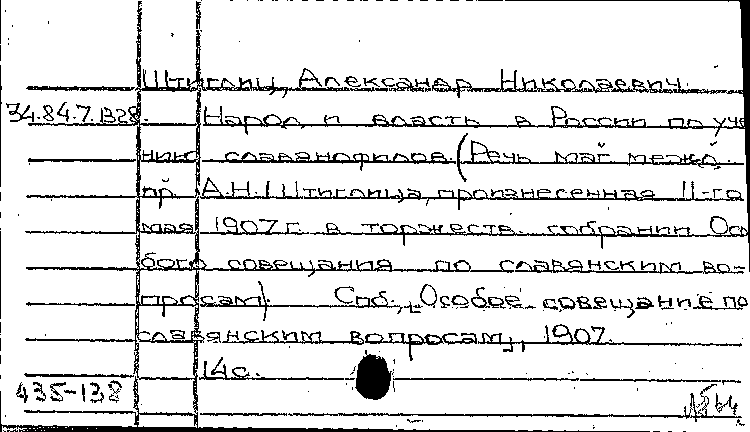 Штиглиц, Александр Николаевич.
34.84.7.1328. Народ и власть в России по уче
нию славянофилов. (Речь маг. межд.
пр. А.Н. Штиглица, произнесенная 11-го
мая 1907 г. в торжеств. собрании Осо
бого совещания по славянским во=
просам). Спб., "Особое совещание по
славянским вопросам", 1907.
14 с.
435-138